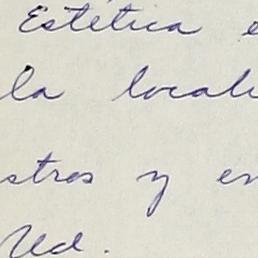 Estética e
la locali
stros y en
Ud.